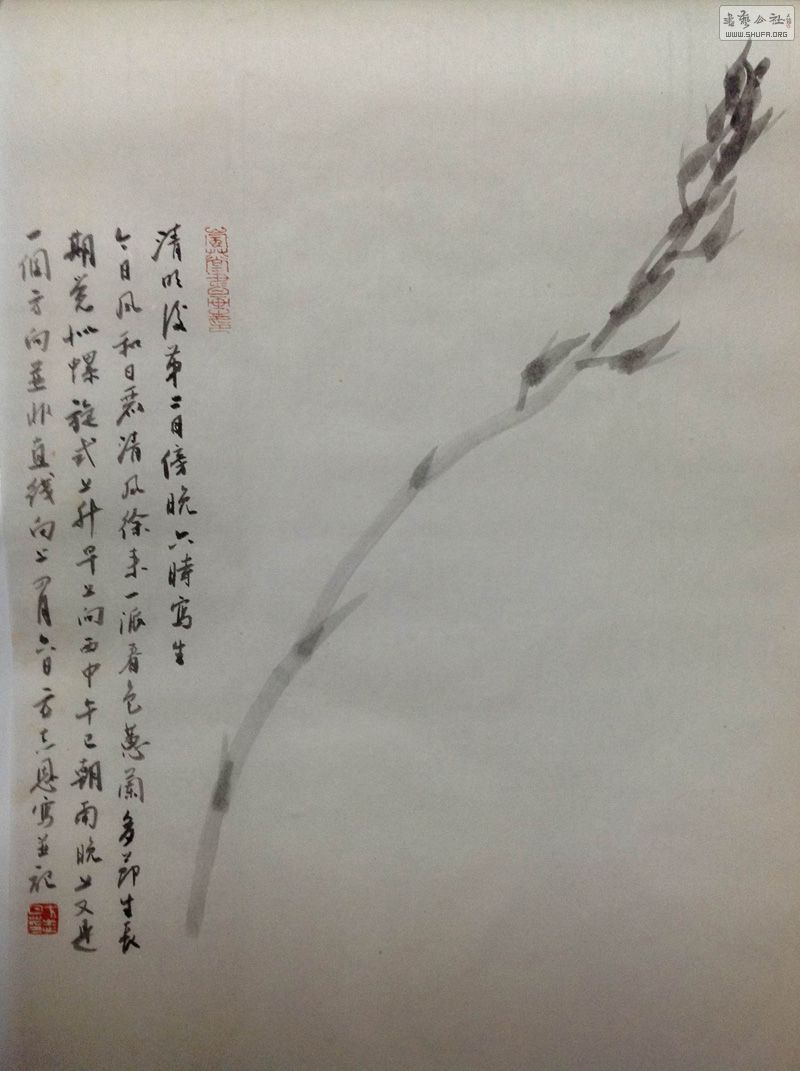 清明後第二日傍晚六時寫生
今日風和日麗清風徐来一派春色蕙蘭多節生長
期覚似螺旋式上升早上向西中午已朝南晚上又是
一個方向並非直线向上四月六日方志恩寫並記
書藝公社
WWW.SHUFA.ORG